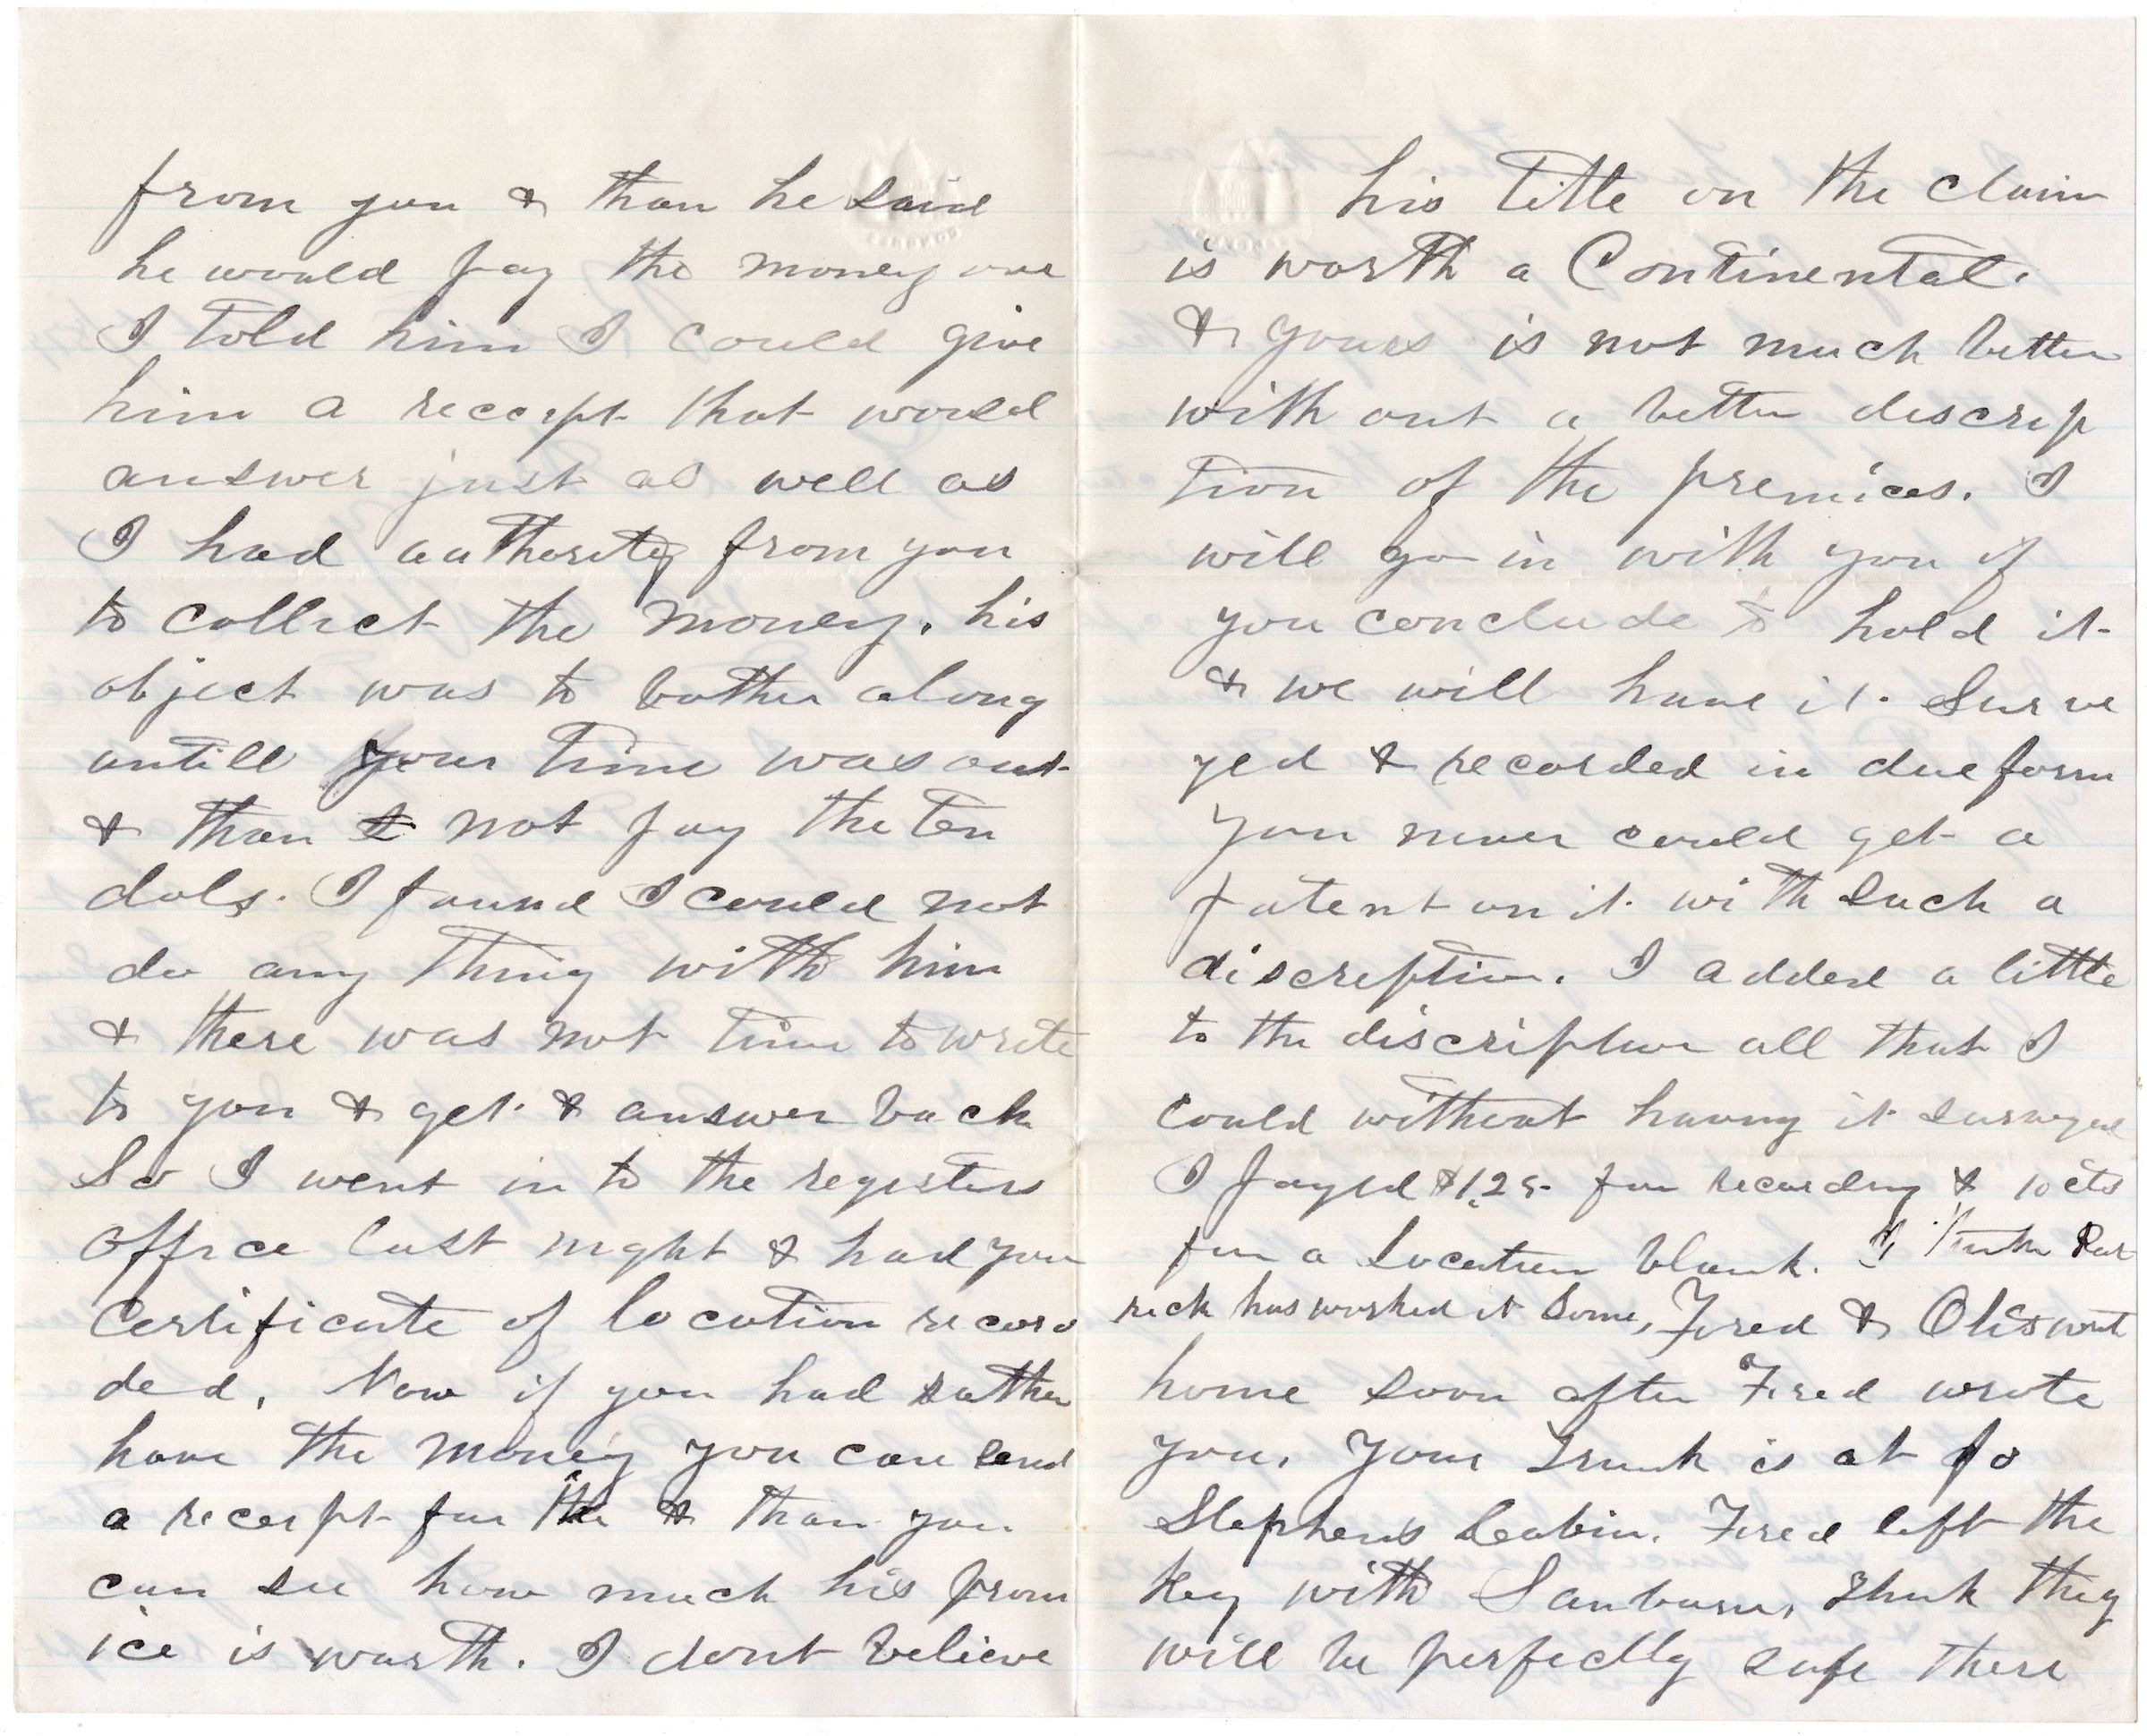 from you & than he said
he would pay the money over
I told him I could give
him a receept that would
answer just as well as
I had authority from you
to collect the money. his
object was to bother along
untill your time was out
& than not pay the ten
dols. I found I could not
do any thing with him
& there was not time to write
to you & get & answer back
So I went in to the registers
office last night & had you
certificate of location recor
ded. Now if you had rather
have the money you can send
a receept for the & than you
can see how much his prom
ice is worth. I dont believe
his title on the claim
is worth a Continental.
& yours is not much better
with out a better discrip
tion of the premices. I
will go in with you if
you conclude to hold it
& we will have it Surve
yed & recorded in due form
you never could get a
patent on it with such a
discreption. I added a little
to the discription all that I
could without having it surveyed
I payed $1.25 for recording & 10 cts
for a Location blank. I think Pat
rick has worked it Some, Fred & Olis went
home soon after Fred wrote
you, your trunk is at Jo
Stephens Cabin. Fred left the
Key with Sanburn, think they
will be perfectly safe there